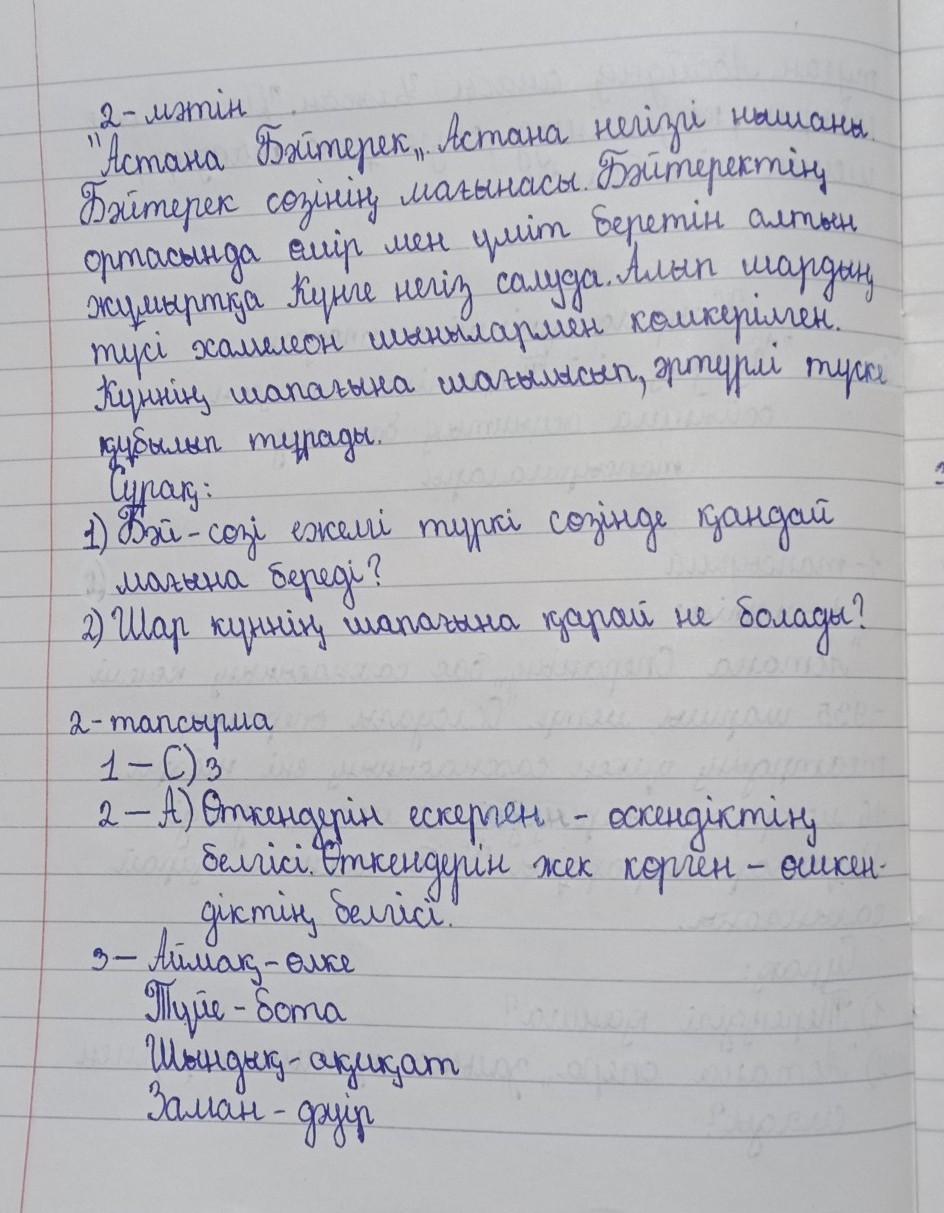 2-мәтін
"Астана Бәйтерек„. Астана негізгі нышаны.
Бәйтерек сөзінің мағынасы. Бәйтеректің
ортасында өмір мен үміт беретін алтын
жұмыртқа Күнге негіз салуда. Алып шардың
түсі хамелеон шынылармен көмкерілген.
Күннің шапағына шағылысып, әртүрлі түске
құбылып тұрады.
Сұрақ:
1) Бәй-сөзі ежелгі түркі сөзінде қандай
мағына береді?
2) Шар күннің шапағына қарай не болады?
2-тапсырма
1 – С) 3
2 – А) Өткендерін ескерген – өскендіктің
белгісі. Өткендерін жек көрген – өшкен-
діктің белгісі.
3 – Аймақ-өлке
Түйе-бота
Шындық-ақиқат
Заман-дәуір